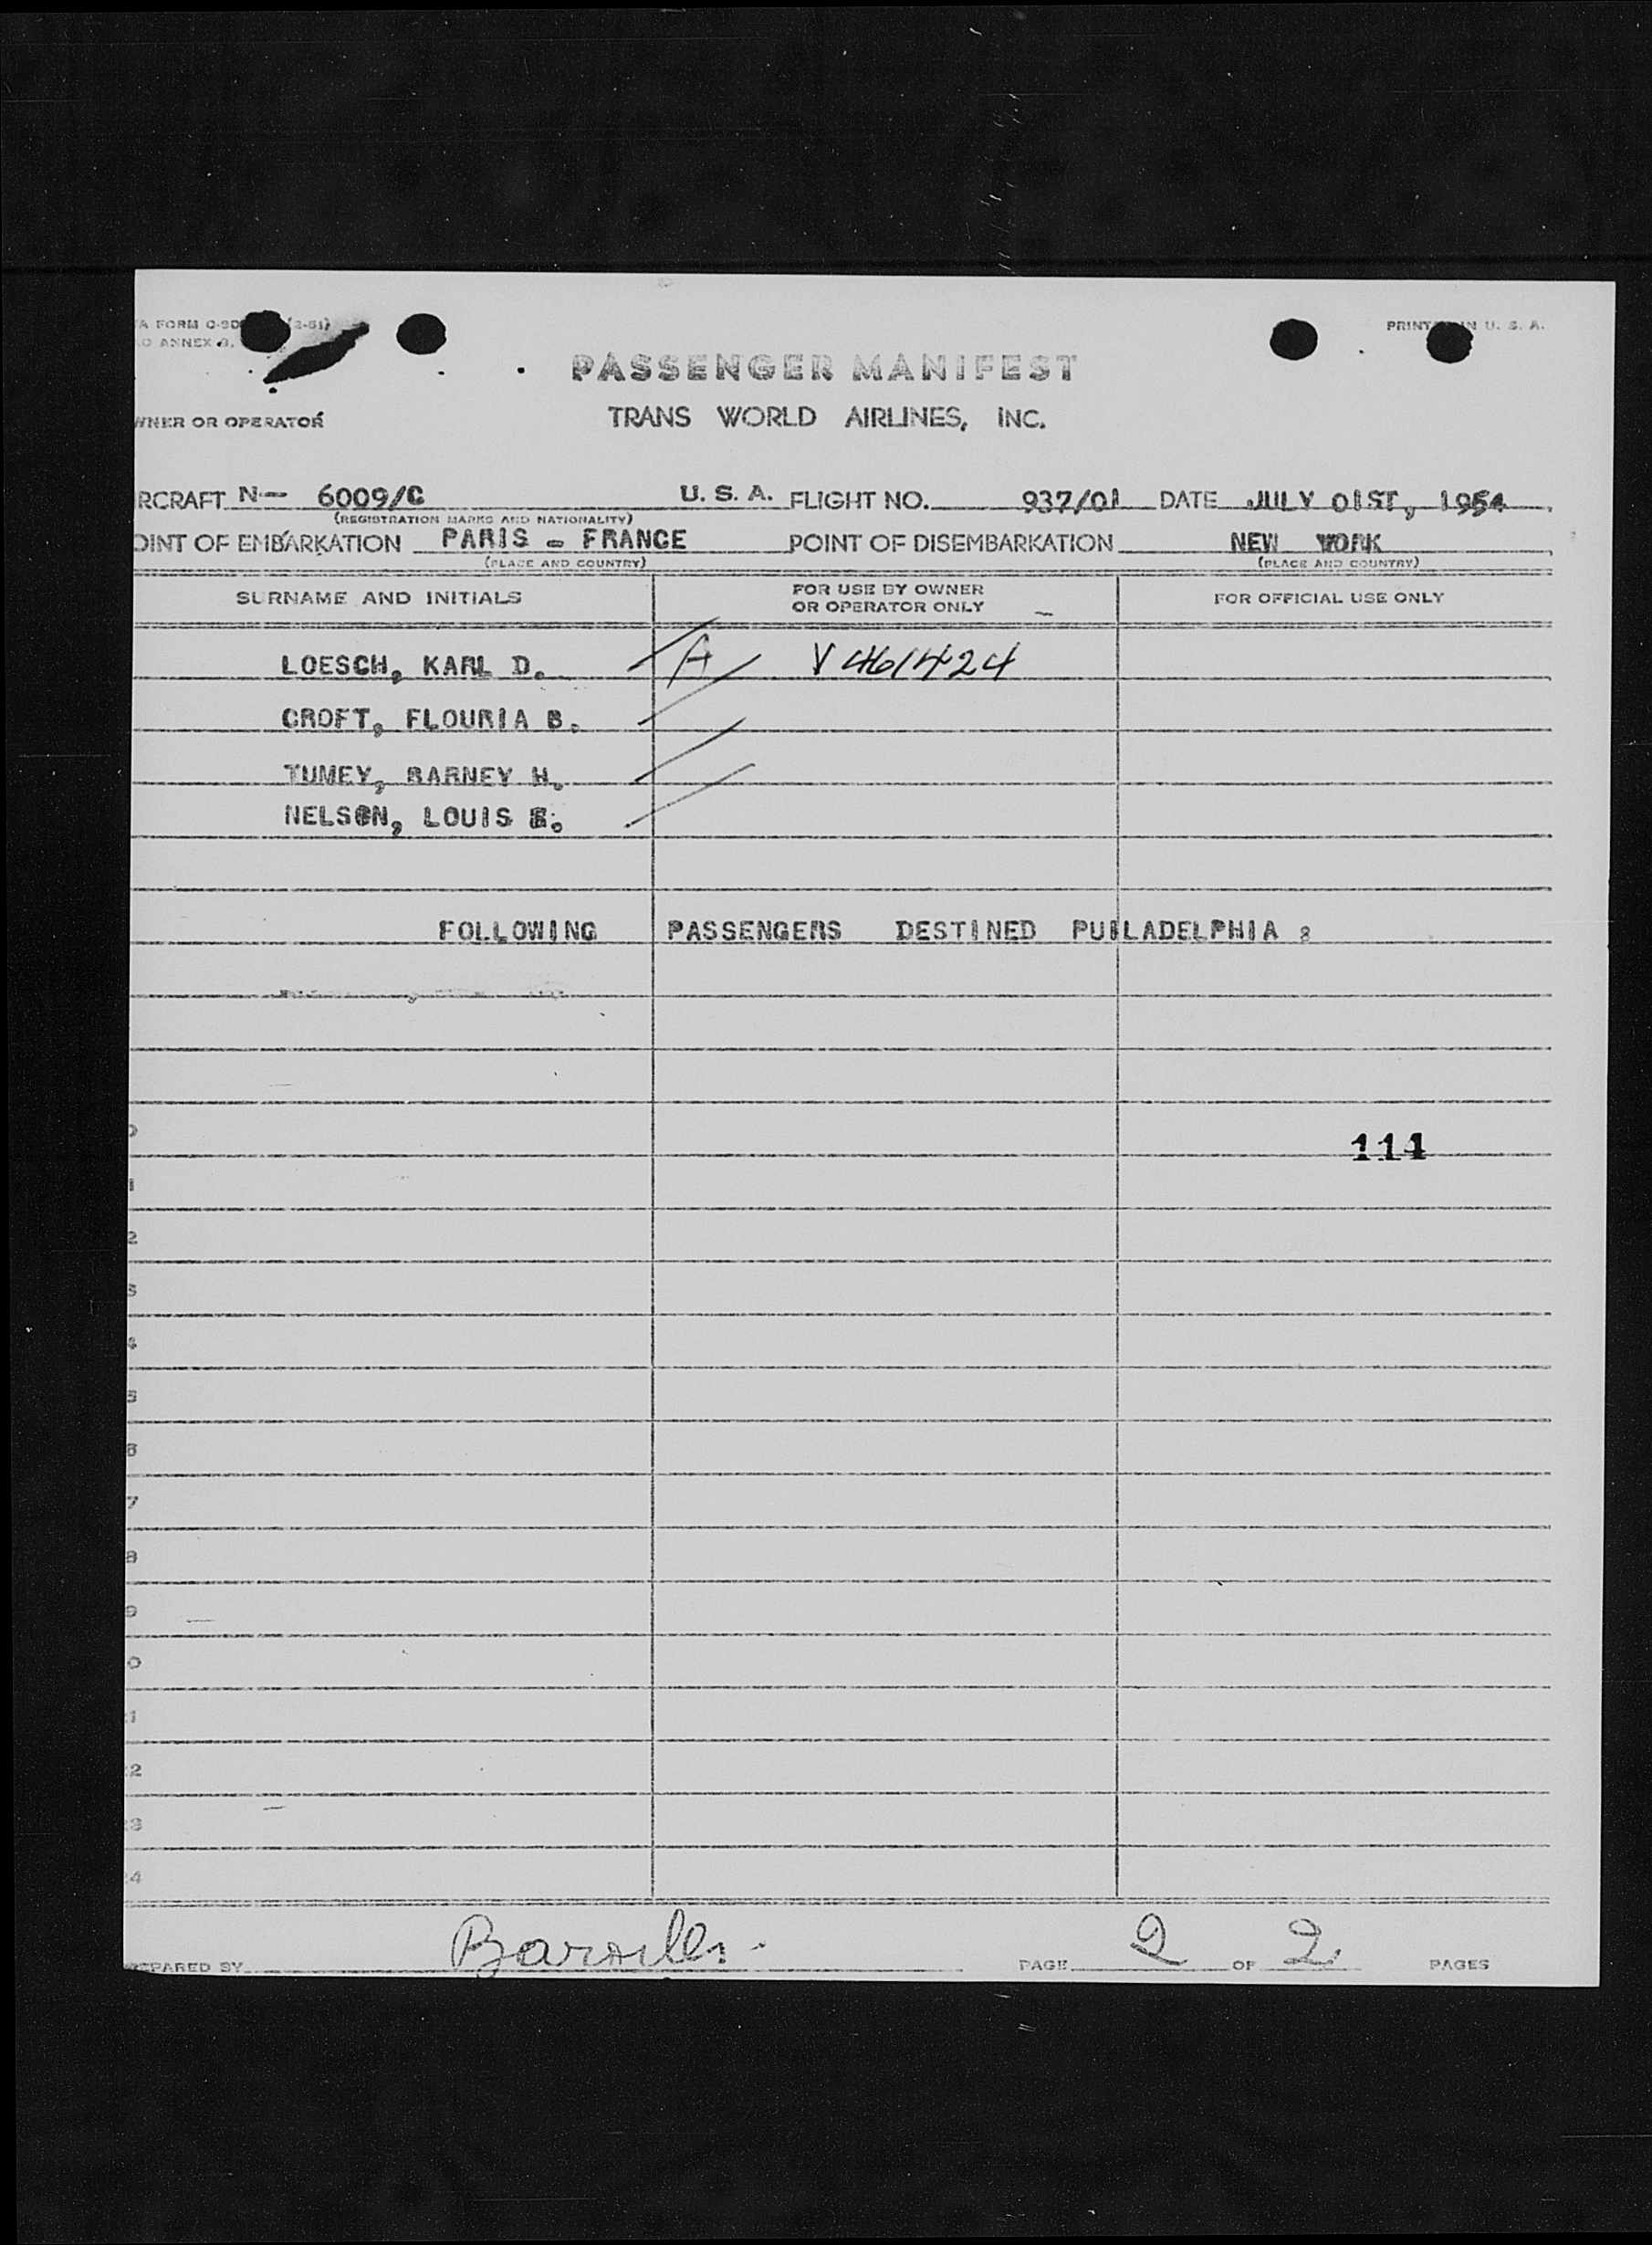 A FORM C-9D (2-51) PRINTED IN U. S. A.
O ANNEX 9.
PASSENGER MANIFEST
WNER OR OPERATOR TRANS WORLD AIRLINES, INC.
RCRAFT N- 6009/C U. S. A. FLIGHT NO. 937/01 DATE JULY 01ST, 1954
(REGISTRATION MARKS AND NATIONALITY)
OINT OF EMBARKATION PARIS - FRANCE POINT OF DISEMBARKATION NEW YORK
(PLACE AND COUNTRY) (PLACE AND COUNTRY)
SURNAME AND INITIALS FOR USE BY OWNER OR OPERATOR ONLY FOR OFFICIAL USE ONLY
LOESCH, KARL D. A V461424
CROFT, FLOURIA B.
TUMEY, BARNEY H.
NELSON, LOUIS E.
FOLLOWING PASSENGERS DESTINED PUILADELPHIA :
0 114
1
2
3
4
5
6
7
8
9
0
1
2
3
4
EPARED BY PAGE 2 OF 2 PAGES